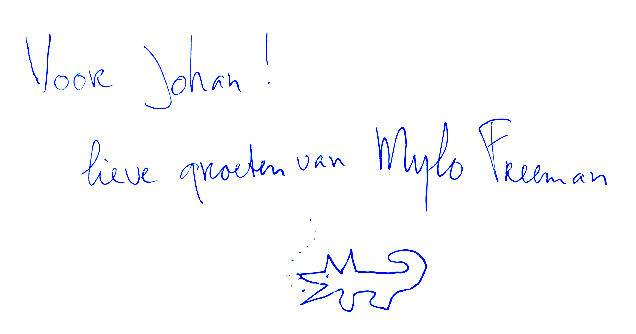 Voor Johan!
lieve groeten van Mylo Freeman